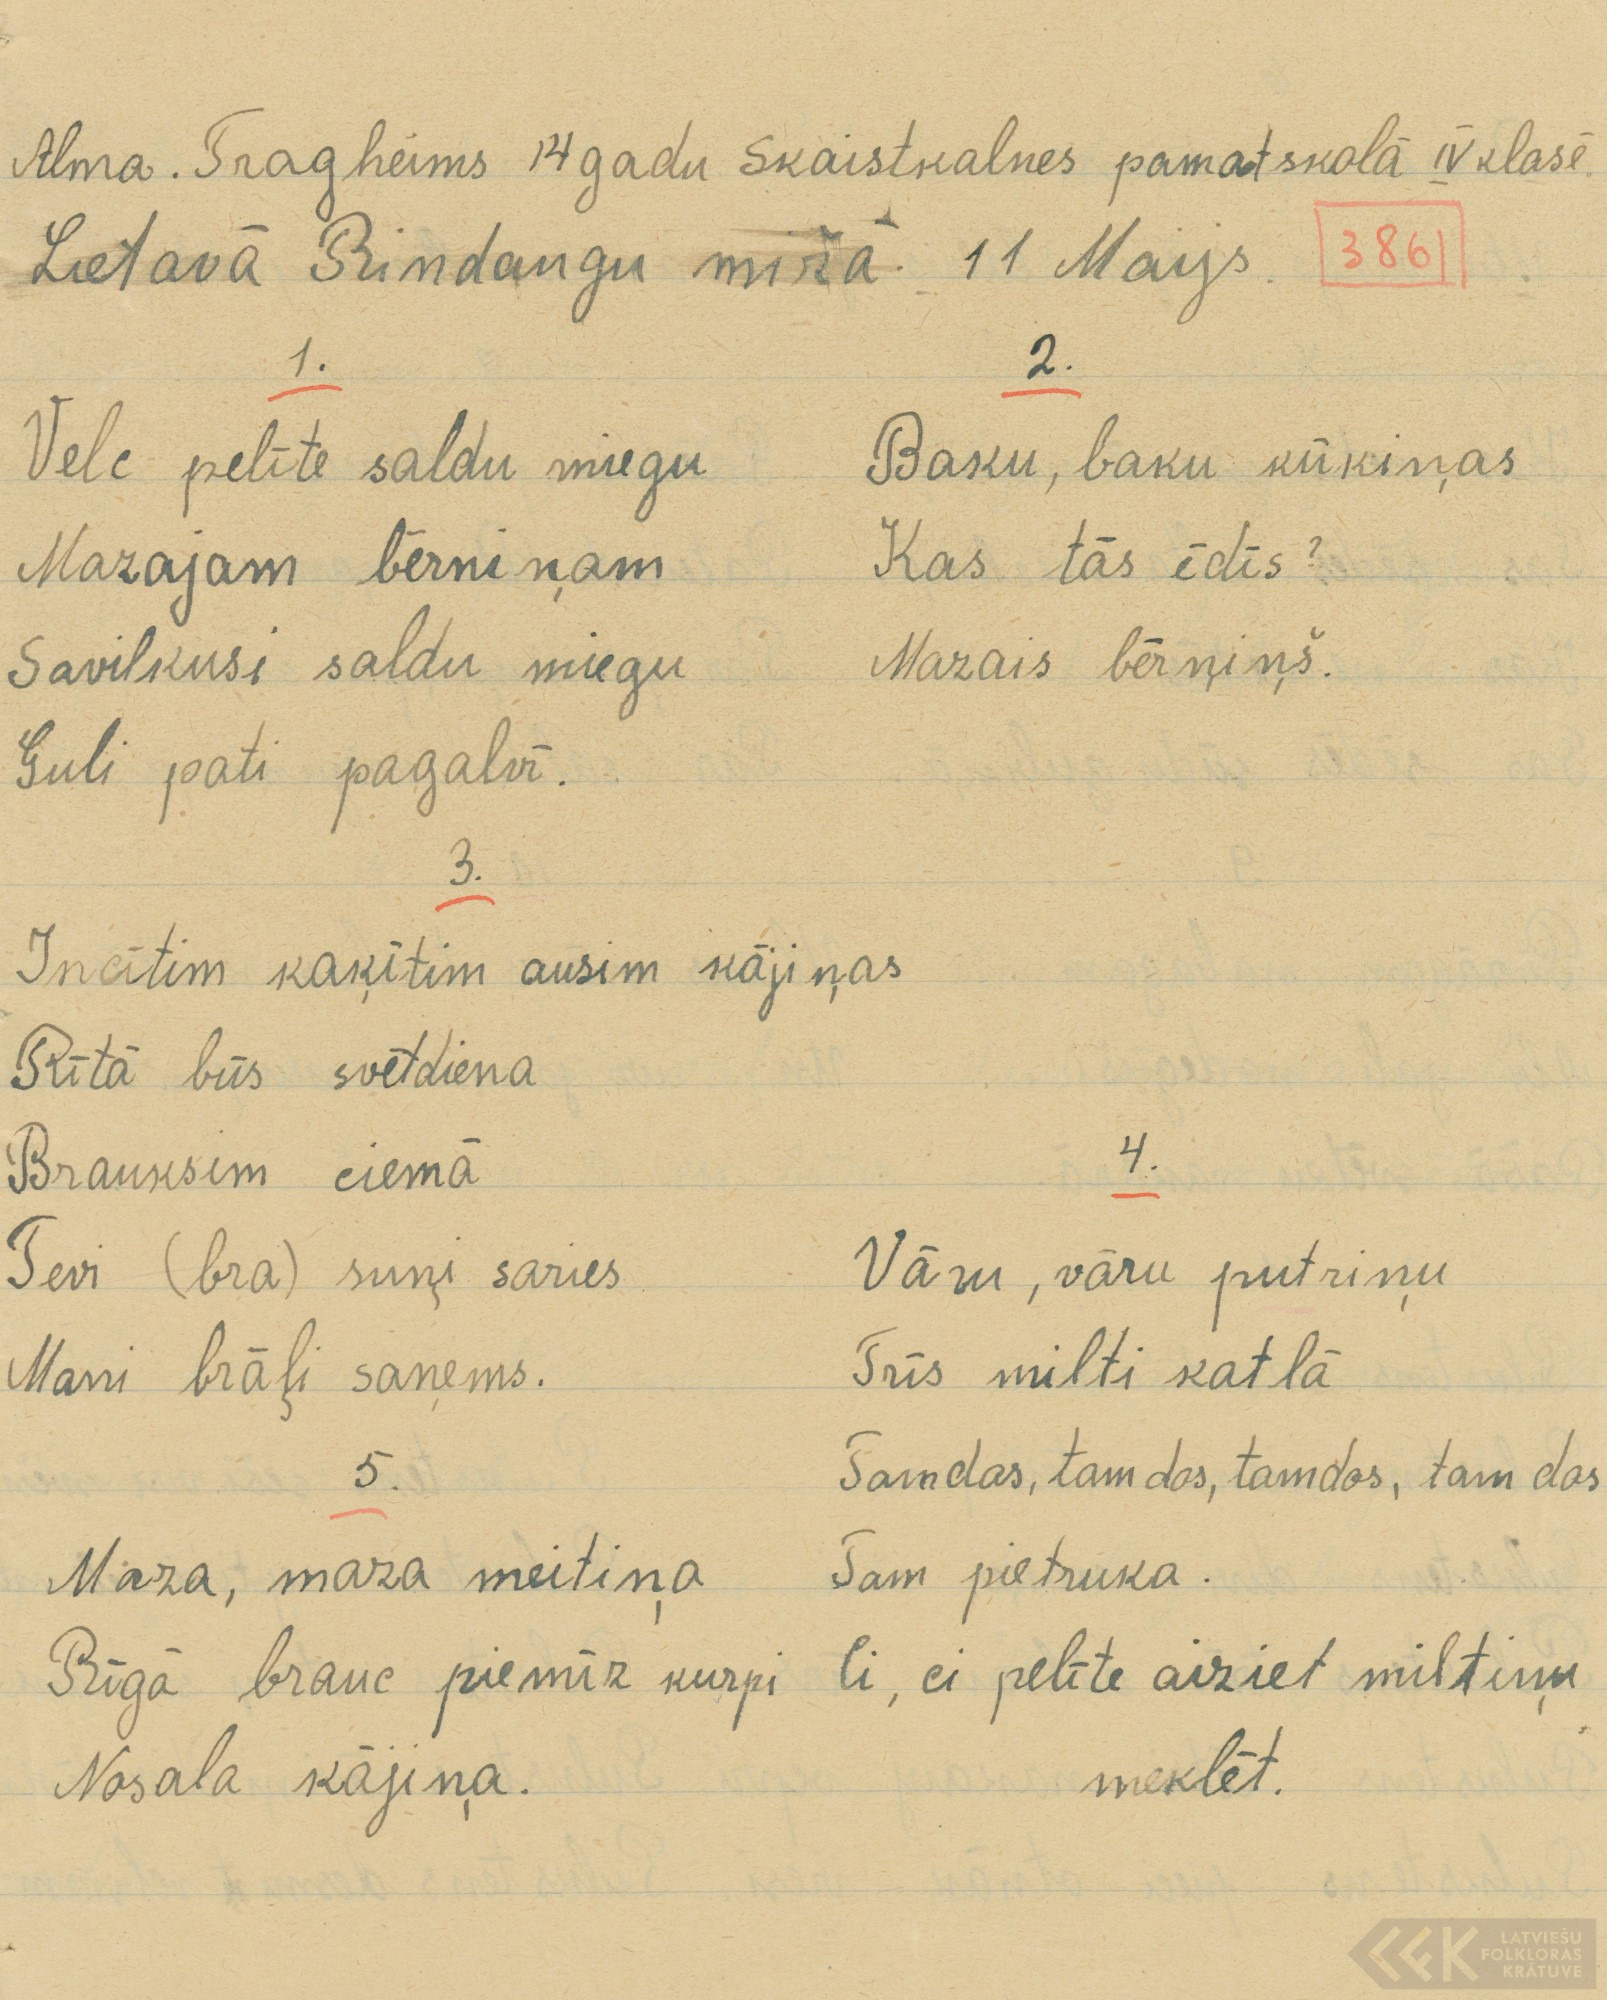 Alma. Fragheims 14 gadu Skaistkalnes pamatskolā IV klasē.
Lietavā Rindaugu mižā. 11 Maijs. 3861
1.
Velc pelīte saldu miegu
Mazajam bērniņam
Savilkusi saldu miegu
Guli pati pagalvī.
2.
Baku, baku kūkiņas
Kas tās ēdīs?
Mazais bērņiņš.
3.
Incītim kaķītim ausim kājiņas
Rītā būs svētdiena
Brauksim ciemā
Tevi (bra) suņi saries
Mani brāļi saņems.
4.
Vāru, vāru putriņu
Trīs milti katlā
Tamdas, tam das, tamdas, tam das
Tam pietruka.
Ci, ci pelīte aiziet miltiņu
meklēt.
5.
Maza, maza meitiņa
Rīgā brauc piemīz kurpi
Nosala kājiņa.
LATVIEŠU
FOLKLORAS
KRĀTUVE